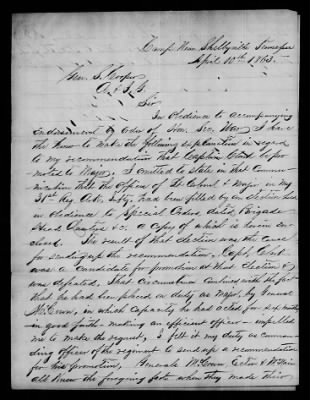 Camp Near Shelbyville Tennessee
April 10th 1863.
Gen. S. Cooper
A & I. G.
Sir
In Obedience to accompanying
Endorsement by Order of Hon. Sec. War, I have
the honor to make the following explanation in regard
to my recommendation that Captain Clark be pro
moted to Major. I omitted to state in that Commu-
nication that the Offices of Lt. Colonel & Major, in my
31st Reg Ark. Infy. had been filled by an Election held
in Obedience to Special Orders dated, Brigade
Head Quarters &c. a Copy of which is herein en
closed. The result of that Election was the cause
for sending up the recommendation, Capt. Clark
was a Candidate for promotion at that Election &
was defeated. That Circumstance Combined with the fact
that he had been placed on duty as Major, by General
McCown, in which capacity he had acted for
in good faith - making an efficient officer - impelled
me to make the request, I felt it my duty as comman-
ding officer of the regiment to send up a recommendation
for his promotion, Generals McCown Ector &
all knew the foregoing facts when they made their